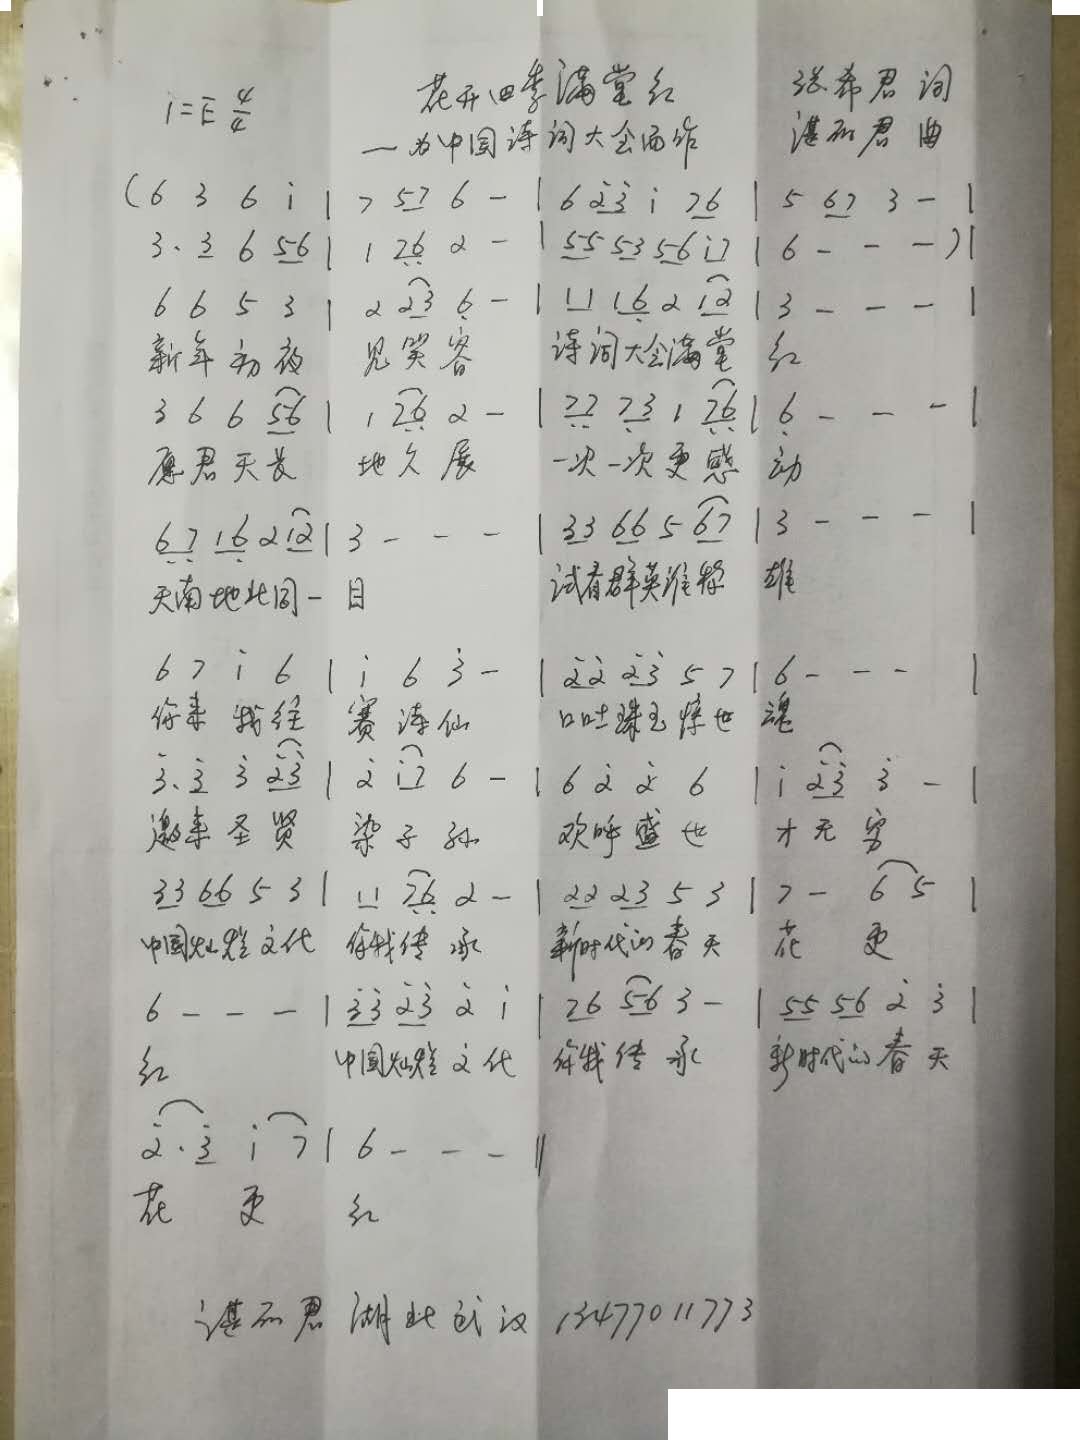 1=E 4/4 花开四季满堂红 张希君 词
—为中国诗词大会而作 谌丽君 曲
(6 3 6 i | 7 57 6 - | 6 2̇3̇ i 76 | 5 67 3 - |
3. 3 6 56 | 1 76 2 - | 55 53 56 i7 | 6 - - - )|
6 6 5 3 | 2 23 6 - | 11 16 2 12 | 3 - - - |
新年初夜 见笑容 诗词大会满堂 红
3 6 6 56 | 1 76 2 - | 77 73 1 76 | 6 - - - |
愿君天长 地久展 一次一次更感 动
67 16 2 12 | 3 - - - | 33 66 5 67 | 3 - - - |
天南地北同一 目 试看群英谁称 雄
6 7 i 6 | i 6 3̇ - | 2̇2̇ 2̇3̇ 5 7 | 6 - - - |
你来我往 赛诗仙 口吐珠玉惊世 魂
3̇. 3̇ 3̇ 2̇3̇ | 2̇ i7 6 - | 6 2̇ 2̇ 6 | i 2̇3̇ 3̇ - |
邀来圣贤 染子孙 欢呼盛世 才无穷
33 66 5 3 | 11 76 2 - | 22 23 5 3 | 7 - 6 5 |
中国灿烂文化 你我传承 新时代的春天 花 更
6 - - - | 3̇3̇ 2̇3̇ 2̇ i | 76 56 3 - | 55 56 2̇ 3̇ |
红 中国灿烂文化 你我传承 新时代的春天
2̇. 3̇ i 7 | 6 - - - ‖
花 更 红
君 湖北武汉 13477011773